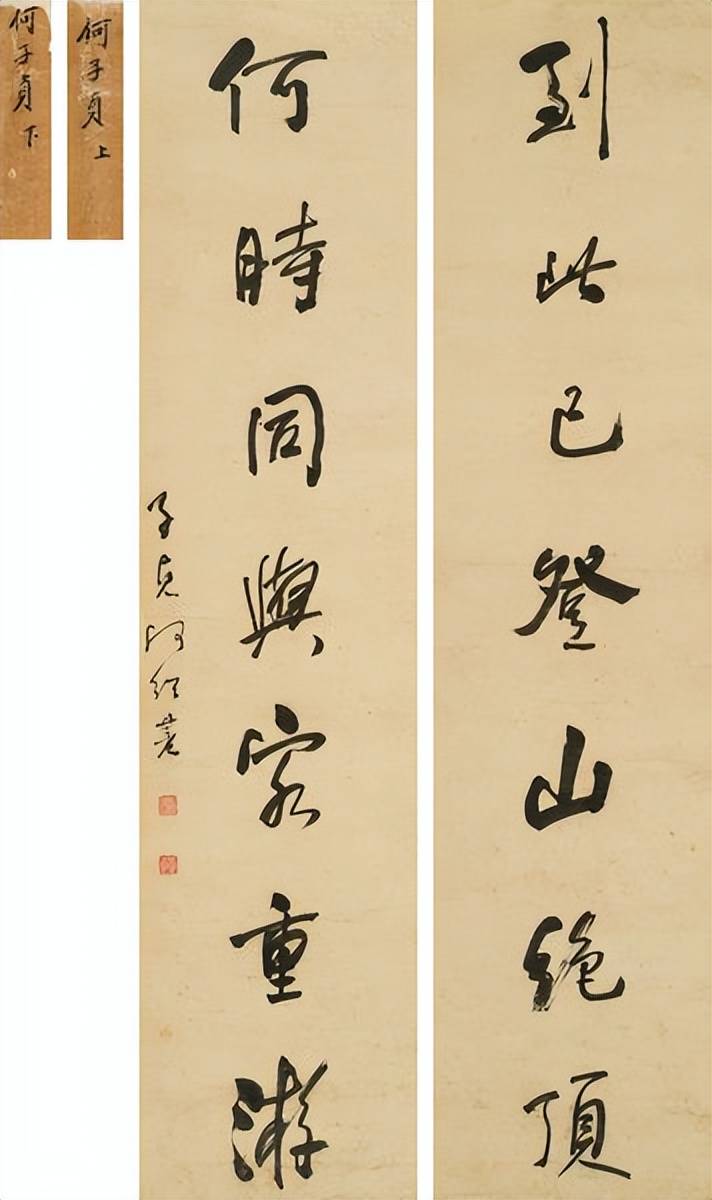 到此已登山絕頂
何時同與客重游
子貞何紹基
何子貞 上
何子貞 下